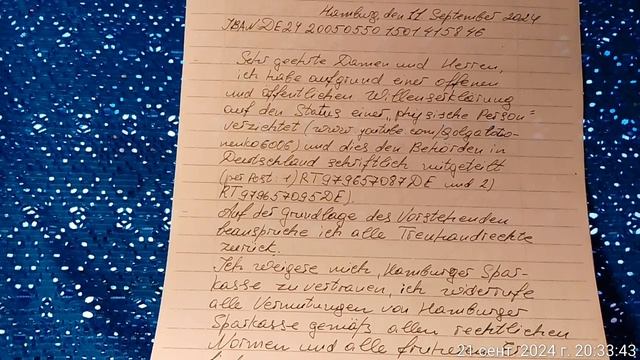 Hamburg, den 11 September 2024
IBAN DE24 20050550 1501415846
Sehr geehrte Damen und Herren,
ich habe aufgrund einer offenen
und öffentlichen Willenserklärung
auf den Status einer „physische Person"
verzichtet (www.youtube.com/@olgatata-
nenko6006) und dies den Behörden in
Deutschland schriftlich mitgeteilt
(per Post: 1) RT979657087DE und 2)
RT979657095DE).
Auf der grundlage des Vorstehenden
beanspruche ich alle Treuhandrechte
zurück.
Ich weigere mich, Hamburger Spar-
kasse zu vertrauen, ich widerrufe
alle Vermutungen von Hamburger
Sparkasse gemäß allen rechtlichen
Normen und alle
21 сент. 2024 г. 20:33:43